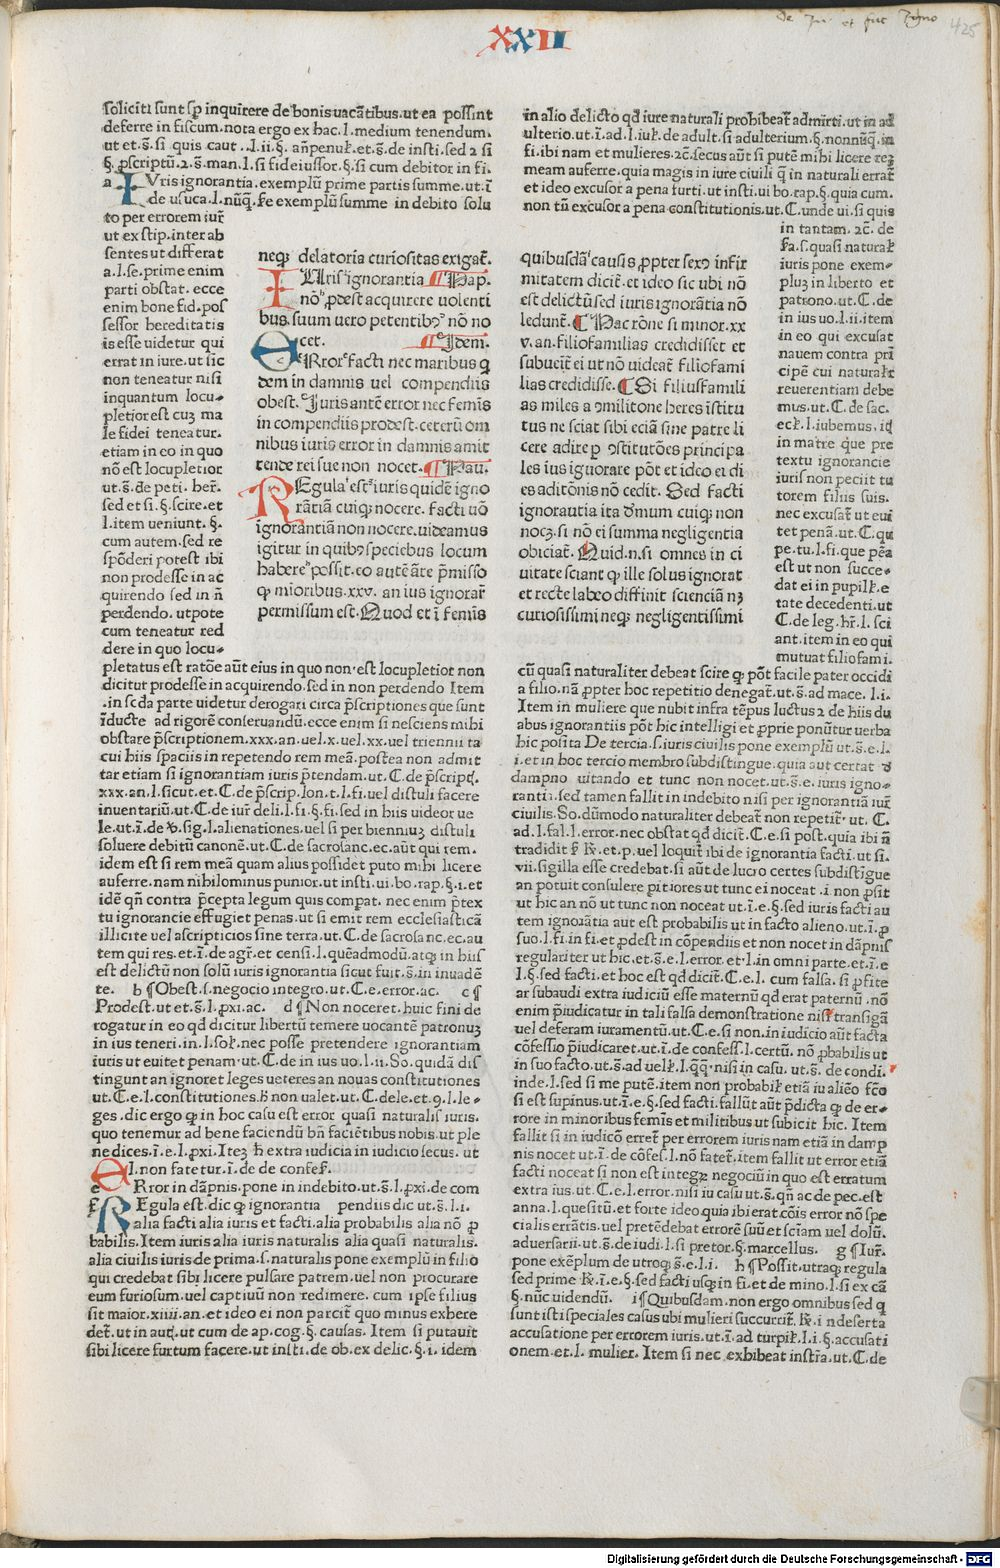 de Iur et fac Igno 425
XXII
soliciti sunt sꝑ inquirere de bonis uacātibus.ut ea possint
deferre in fiscum.nota ergo ex hac.l.medium tenendum.
ut et.s̄.si quis caut..l.ii.§. an̄penul̄.et.s̄.de insti.sed 2 si
§.ꝓscriptū.2.s̄.man.l.si fideiussor.§.si cum debitor in fi.
a IVris ignorantia.exemplū prime partis summe.ut.ī
de usuca.l.nūꝗ.ſe exemplū summe in debito solu
to per errorem iur̄
ut ex stip.inter ab
sentes ut differat
a.l.se.prime enim
parti obstat. ecce
enim bone fid.pos
sessor hereditatis
is esse uidetur qui
errat in iure.ut sic
non teneatur nisi
inquantum locu-
pletior est cuȝ ma
le fidei teneatur.
etiam in eo in quo
nō est locupletior
ut.s̄.de peti. her̄.
sed et si.§.scire.et
l.item ueniunt.§.
cum autem.sed re
spōderi potest ibi
non prodesse in ac
quirendo sed in n̄
perdendo. utpote
cum teneatur red
dere in quo locu-
pletatus est ratōe aūt eius in quo non est locupletior non
dicitur prodesse in acquirendo.sed in non perdendo Item
.in scda parte uidetur derogari circa p̄scriptiones que sunt
īducte ad rigorē conseruandū.ecce enim si nesciens mihi
obstare p̄scriptionem.xxx.an.uel.x.uel.xx.uel triennii ta
cui hiis spaciis in repetendo rem meā.postea non admit
tar etiam si ignorantiam iuris p̄tendam.ut.C.de p̄scripṫ.
xxx.an.l.sicut.et.C.de p̄scrip.lon.t.l.fi.uel distuli facere
inuentariū.ut.C.de iur̄ deli.l.fi.§.fi.sed in hiis uideor ue
le.ut.ī.de v̄.sig.l.alienationes.uel si per bienniuȝ distuli
soluere debitū canonē.ut.C.de sacrosanc.ec.aūt qui rem.
idem est si rem meā quam alius possidet puto mihi licere
auferre.nam nihilominus punior.ut insti.ui.bo.rap.§.i.et
idē qn̄ contra p̄cepta legum quis compat. nec enim p̄tex
tu ignorancie effugiet penas.ut si emit rem ecclesiasticā
illicite uel ascripticios sine terra.ut.C.de sacrosanc.ec.au
tem qui res.et.ī.de agr̄.et censi.l.quēadmodū.atq̨ in hiis
est delictū non solū iuris ignorantia sicut fuit.s̄.in inuadē
te. b ¶Obest.s.negocio integro.ut.C.e.error.ac. c ¶
Prodest.ut et.s̄.l.ꝓxi.ac. d ¶Non noceret.huic fini de
rogatur in eo qđ dicitur libertū temere uocantē patronuȝ
in ius teneri.in.l.sol̄.nec posse pretendere ignorantiam
iuris ut euitet penam.ut.C.de in ius uo.l.ii.So.quidā dis
tingunt an ignoret leges ueteres an nouas constitutiones
ut.C.e.l.constitutiones.h̄ non ualet.ut.C.de le.et.9.l.le-
ges.dic ergo ꝙ in hoc casu est error quasi naturalis iuris.
quo tenemur ad bene faciendū bn̄ faciētibus nobis.ut ple
ne dices.ī.e.l.ꝓxi.Iteȝ h̄ extra iudicia in iudicio secus. ut
l.non fatetur.ī.de confeſ.
e ERror in dāpnis.pone in indebito.ut.s̄.l.ꝓxi.de com
f REgula est.dic ꝙ ignorantia pendiis dic ut.s̄.l.i.
alia facti alia iuris et facti.alia probabilis alia nō ꝓ
babilis.Item iuris alia iuris naturalis alia quasi naturalis.
alia ciuilis iuris de prima.s.naturalis pone exemplū in filio
qui credebat sibi licere pulsare patrem.uel non procurare
eum furiosum.uel captiuū non redimere. cum ipse filius
sit maior.xiiii.an.et ideo ei non parcit̄ quo minus exhere
det̄.ut in autꝭ.ut cum de ap.cog.§.causas. Item si putauit
sibi licere furtum facere.ut insti.de ob.ex delic.§.i. idem
neq̨ delatoria curiositas exigat̄.
IUris ignorantia ¶Pap.
nō ꝓdest acquirere uolenti
bus.suum uero petentibꝰ nō no
cet. ¶Idem.
ERror facti nec maribus ꝗ
dem in damnis uel compendiis
obest.Iuris antē error nec femīs
in compendiis prodest.ceterū om
nibus iuris error in damnis amit
tende rei sue non nocet.¶Pau.
REgula est iuris quidē igno
rātiā cuiq̨ nocere. facti uō
ignorantiā non nocere.uideamus
igitur in quibꝰ speciebus locum
habere possit.eo autē āte p̄misso
ꝙ mioribus.xxv. an ius ignorar̄
permissum est.Quod et ī femīs
quibusdā causis ꝓpter sexꝰ infir
mitatem dicit̄.et ideo sic ubi nō
est delictū sed iuris ignorātia nō
ledunt̄.¶Hac rōne si minor.xx
v.an.filiofamilias credidisset et
subueit̄ ei ut nō uideat̄ filiofami
lias credidisse.¶Si filiusfamili
as miles a ↄmilitone heres īstitu
tus ne sciat sibi eciā sine patre li
cere adire ꝑ ↄstitutōes principa
les ius ignorare pōt et ideo ei di
es aditōnis nō cedit. Sed facti
ignorautia ita dmum cuiq̨ non
nocȝ.si nō ei summa negligentia
obiciat̄.Quid.n.si omnes in ci
uitate sciant ꝙ ille solus ignorat
et recte labeo diffinit scienciā nȝ
curiosissimi neq̨ negligentissimi
in alio delicto qđ iure naturali prohibeat̄ admitti.ut in ad
ulterio.ut.ī.ad.l.iul̄.de adult.si adulterium.§.nonnūꝗ.in
fi.ibi nam et mulieres.2c̄.secus aūt si putē mihi licere reȝ
meam auferre.quia magis in iure ciuili ꝗ in naturali errat̄
et ideo excusor a pena furti.ut insti.ui bo.rap.§.quia cum.
non tn̄ excusor a pena constitutionis.ut.C.unde ui.si quis
in tantam. 2c̄. de
ſa.s.quasi natural̄
iuris pone exem-
pluȝ in liberto et
patrono.ut.C.de
in ius uo.l.ii.item
in eo qui excusat
nauem contra prī
cipē cui natural̄
reuerentiam debe
mus.ut.C.de sac.
eccl̄.l.iubemus.iđ
in matre que pre
textu ignorancie
iuris non peciit tu
torem filiis suis.
nec excusat̄ ut eui
tet penā.ut.C.qui
pe.tu.l.fi.que pēa
est ut non succe-
dat ei in pupill̄.e
tate decedenti.ut
C.de leg.hr̄.l.sci
ant.item in eo qui
mutuat filiofami.
cū quasi naturaliter debeat scire ꝙ pōt facile pater occidi
a filio.nā ꝓpter hoc repetitio denegat̄.ut.s̄.ad mace.l.i.
Item in muliere que nubit infra tēpus luctus 2 de hiis du
abus ignorantiis pōt hic intelligi et ꝓprie ponūtur uerba
hic posita De tercia.s.iuris ciuilis pone exemplū ut.s̄.e.l.
i.et in hoc tercio membro subdistingue.quia aut certat đ
dampno uitando et tunc non nocet.ut.s̄.e.iuris igno-
rantia.sed tamen fallit in indebito nisi per ignorantiā iur̄
ciuilis.So.dūmodo naturaliter debeat̄ non repetit̄.ut. C.
ad.l.fal.l.error.nec obstat qđ dicit̄.C.e.si post.quia ibi n̄
tradidit ſ R̄.et.p.uel loquit̄ ibi de ignorantia facti.ut si.
vii.sigilla esse credebat.si aūt.de lucro certes subdistīgue
an potuit consulere pitiores ut tunc ei noceat.i.non ꝓsit
ut hic an nō ut tunc non noceat ut.ī.e.§.sed iuris facti au
tem ignoīatia aut est probabilis ut in facto alieno.ut.ī.ꝓ
suo.l.fi.in fi.et ꝓdest in cōpendiis et non nocet in dāpnis
regulariter ut hic.et.s̄.e.l.error.et.l.in omni parte.et.ī.e
l.§.sed facti.et hoc est qđ dicit̄.C.e.l. cum falsa. si ꝓfite
ar subaudi extra iudiciū esse maternū qđ erat paternū.nō
enim p̄iudicatur in tali falsa demonstratione nisi transigā
uel deferam iuramentū.ut.C.e.si non.in iudicio aūt facta
cōfessio p̄iudicaret.ut.ī.de confess̄.l.certū. nō ꝓbabilis ut
in suo facto.ut.s̄.ad uell̄.l.ꝗꝗ.nisi in casu.ut.s̄. de condi.
inde.l.sed si me putē.item non probabil̄ etiā iu aliēo fc̄o
si est supinus.ut.ī.e.§.sed facti.fallūt aūt p̄dicta ꝙ de er-
rore in minoribus femīs et militibus ut subicit hic. Item
fallit si in iudicō erret̄ per errorem iuris nam etiā in damp
nis nocet ut.ī.de cōfeſ.l.nō fatet̄.item fallit ut error etiā
facti noceat si non est integȝ negociū in quo est erratum
extra ius.ut.C.e.l.error.nisi iu casu ut.s̄.qn̄ ac de pec.est
anna.l.quesitū.et forte ideo quia ibi erat.cōis error nō spe
cialis errātis.uel pretēdebat errorē suū et sciam uel dolū.
aduersarii.ut.s̄.de iudi.l.si pretor.§.marcellus. g ¶Iur̄.
pone exēplum de utroq̨.s̄.e.l.i. h ¶Possit.utraq̨ regula
sed prime R̄.ī.e.§.sed facti usq̨ in fi.et de mino.l.si ex cā
§.nūc uidendū. i ¶Quibusdam.non ergo omnibus sed ꝗ
sunt isti speciales casus ubi mulieri succurrit̄. R̄.i ndeserta
accusatione per errorem iuris.ut.ī.ad turpil̄.l.i.§.accusati
onem.et.l. mulier. Item si nec exhibeat instr̄a.ut.C.de
Digitalisierung gefördert durch die Deutsche Forschungsgemeinschaft - DFG